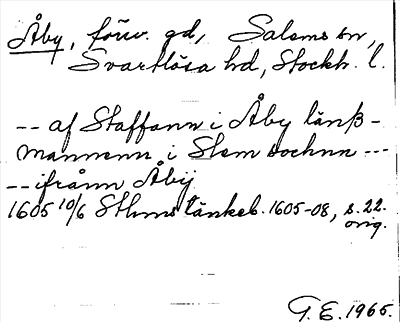 Åby, förv. gd, Salems sn,
Svartlösa hd, Stockh. l.
-- af Staffann i Åby länß-
mannenn i Slem sochnn ---
-- ifrånn Åbÿ
1605 10/6 Sthms tänkeb. 1605-08, s. 22.
orig.
G. E. 1965.